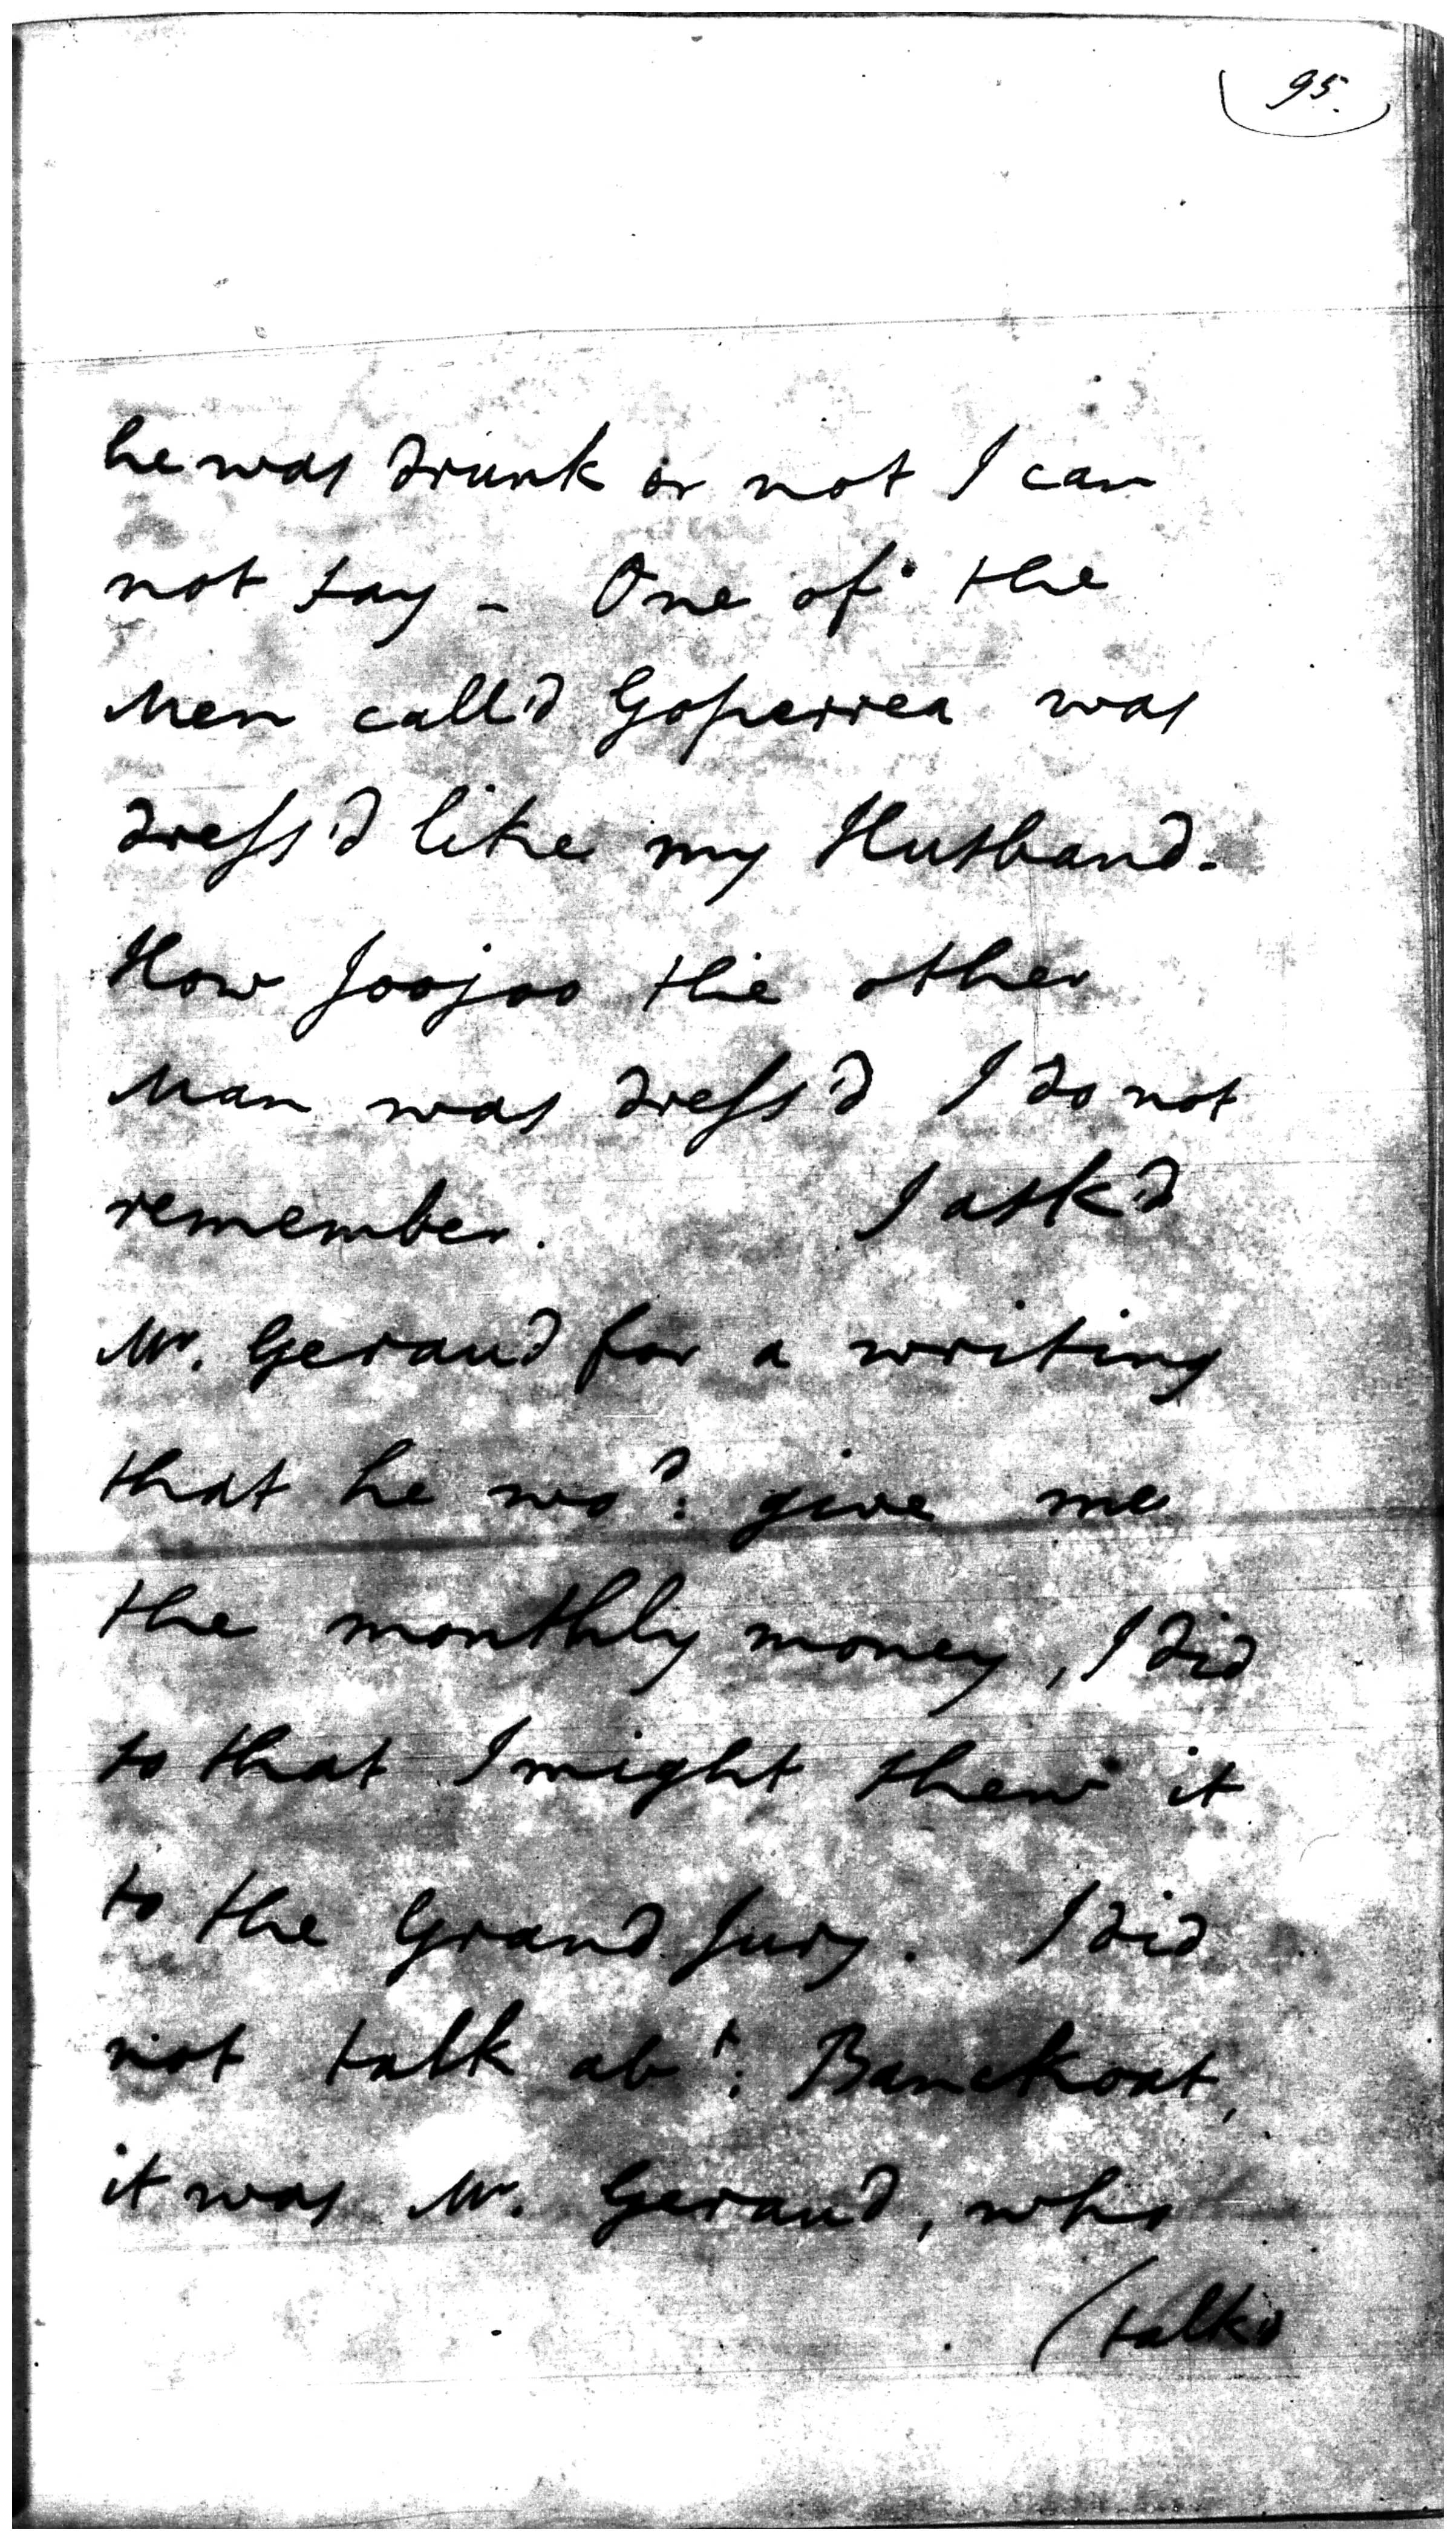 95.
he was drunk or not I can
not say - One of the
Men call'd Goperrea was
dress'd like my Husband.
How Joojoo the other
Man was dress'd I do not
remember. I ask'd
Mr. Geraud for a writing
that he wo^d: give me
the monthly money, I did
so that I might shew it
to the Grand Jury. I did
not talk ab^t: Banckoat,
it was Mr. Geraud, who
(talk'd